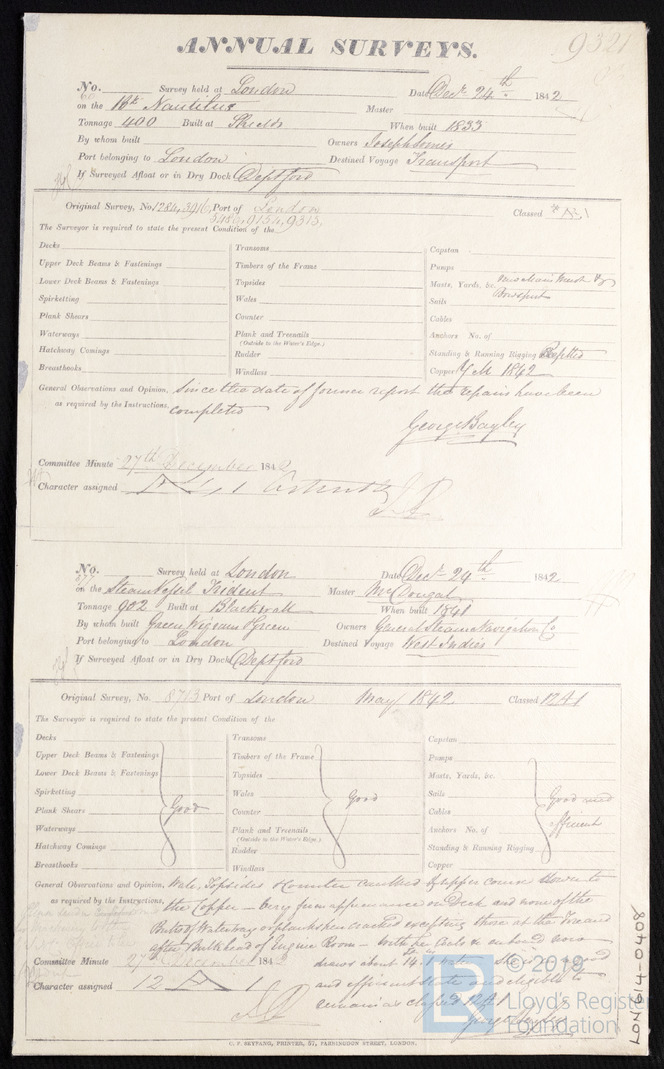 ANNUAL SURVEYS.
9321
No. 60 Survey held at London Date Decr 24th 1842
on the Bk Nautilus Master
Tonnage 400 Built at Shields When built 1833
By whom built Owners Joseph Somes
Port belonging to London Destined Voyage Transport
If Surveyed Afloat or in Dry Dock Deptford
Original Survey, No. 1284, 3916, Port of London Classed
9154, 9313
The Surveyor is required to state the present Condition of the
Decks Transoms Capstan
Upper Deck Beams & Fastenings Timbers of the Frame Pumps
Lower Deck Beams & Fastenings Topsides Masts, Yards, &c. new Main Mast &
Bowsprit
Spirketting Wales Sails
Plank Shears Counter Cables
Waterways Plank and Treenails Anchors No. of
(Outside to the Water's Edge.)
Hatchway Comings Rudder Standing & Running Rigging Refitted
Breasthooks Windlass Copper Y.M. 1842
General Observations and Opinion, Since the date of former report the repairs have been
as required by the Instructions, completed
George Bayley
Committee Minute 27th December 1842
Character assigned Æ 1
No. 277 Survey held at London Date Decr 24th 1842
on the Steam Vessel Trident Master McDougal
Tonnage 902 Built at Blackwall When built 1841
By whom built Green Wigrams & Green Owners General Steam Navigation Co
Port belonging to London Destined Voyage West Indies
If Surveyed Afloat or in Dry Dock Deptford
Original Survey, No. 8713 Port of London May 1842 Classed 12 A1
The Surveyor is required to state the present Condition of the
Decks Transoms Capstan
Upper Deck Beams & Fastenings Timbers of the Frame Pumps
Lower Deck Beams & Fastenings Topsides Masts, Yards, &c.
Spirketting Wales Sails
Plank Shears Good Counter Good Cables Good and
efficient
Waterways Plank and Treenails Anchors No. of
(Outside to the Water's Edge.)
Hatchway Comings Rudder Standing & Running Rigging
Breasthooks Windlass Copper
General Observations and Opinion, Wales, Topsides & Counter caulked & upper course down to
as required by the Instructions, the Copper – very firm appearance on Deck and none of the
Butts of Waterway or planksheer cracked excepting those at the Fore and
after Bulkhead of Engine Room – with her Coals &c on board now
draws about 14. She is in a good
and efficient state and eligible to
remain as classed 12 A1
George Bayley
Committee Minute 27th December 1842
Character assigned 12 A 1
C. F. SEYFANG, PRINTER, 57, FARRINGDON STREET, LONDON.
LON614-0408
© 2019
LR
Lloyd's Register
Foundation